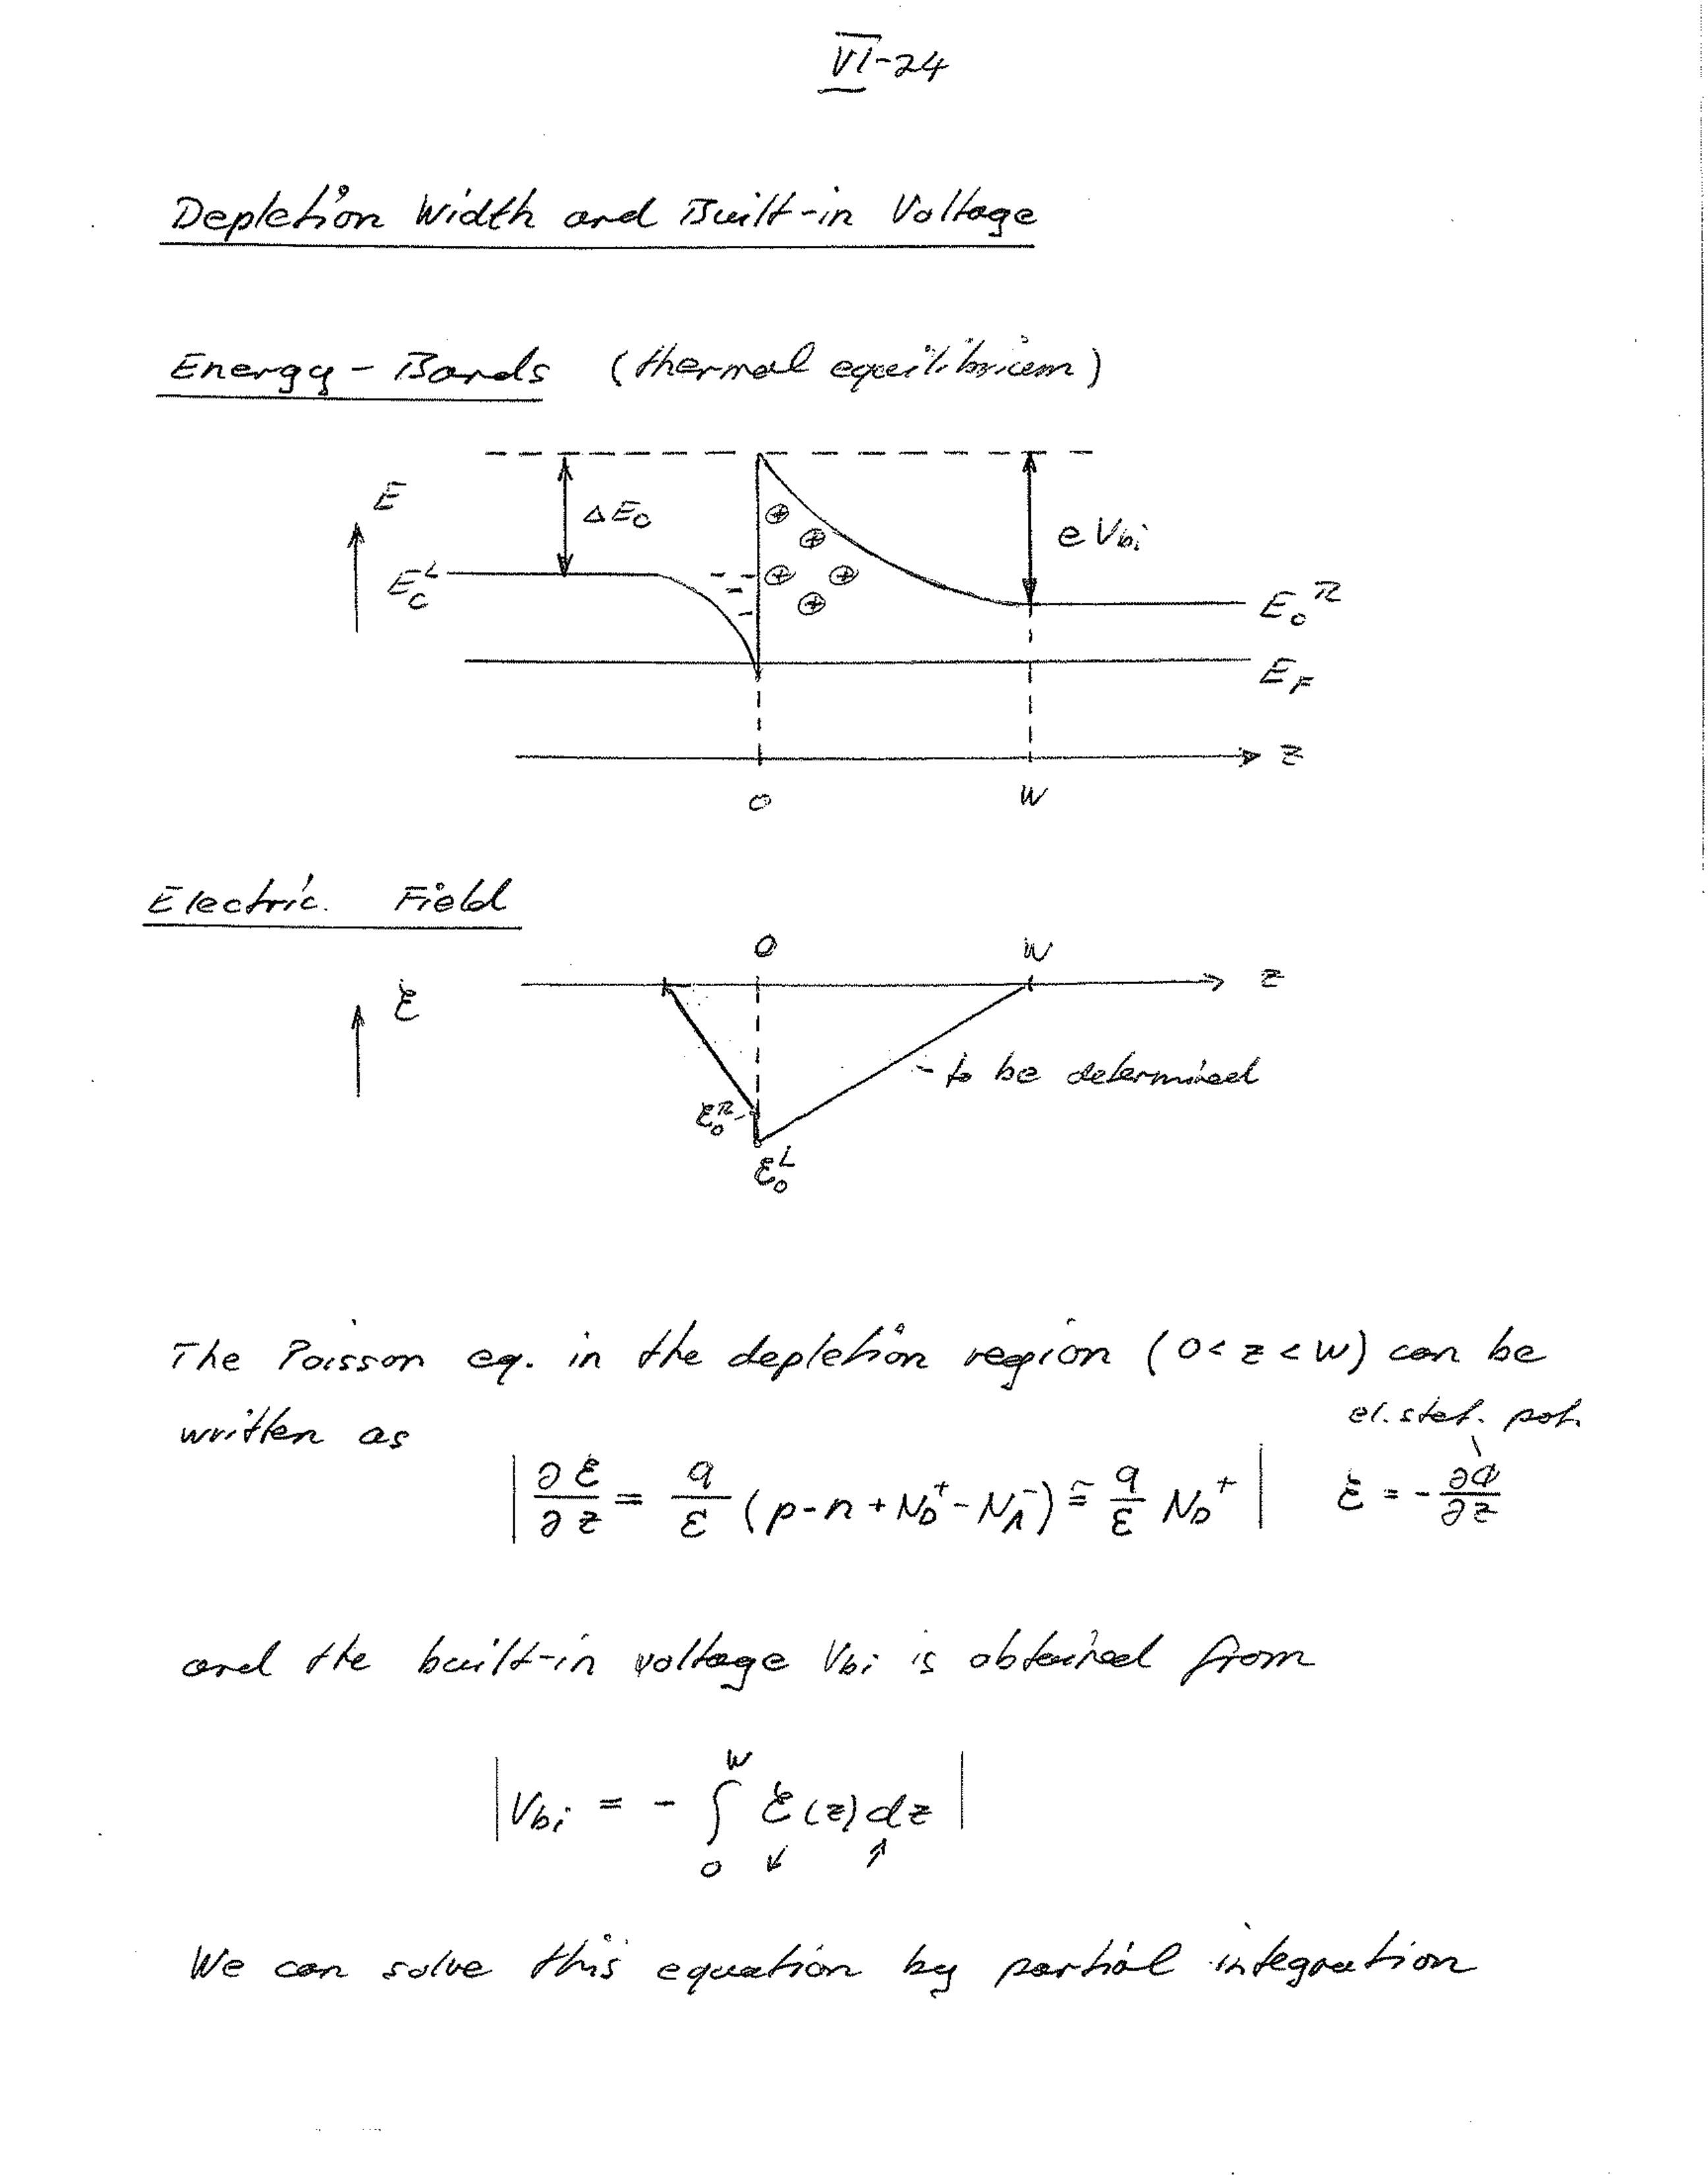 VI-24
Depletion Width and Built-in Voltage
Energy-Bands (thermal equilibrium)
E
ΔE_C
e V_bi
E_C^L
E_C^R
E_F
z
0 W
Electric Field
0 W
z
ℰ
- to be determined
ℰ_0^R
ℰ_0^L
The Poisson eq. in the depletion region (0 < z < W) can be
el. stat. pot.
written as
| ∂ℰ/∂z = q/ε (p - n + N_D^+ - N_A^-) ≅ q/ε N_D^+ | ℰ = - ∂Φ/∂z
and the built-in voltage V_bi is obtained from
| V_bi = - ∫_0^W ℰ(z) dz |
↙ ↗
We can solve this equation by partial integration